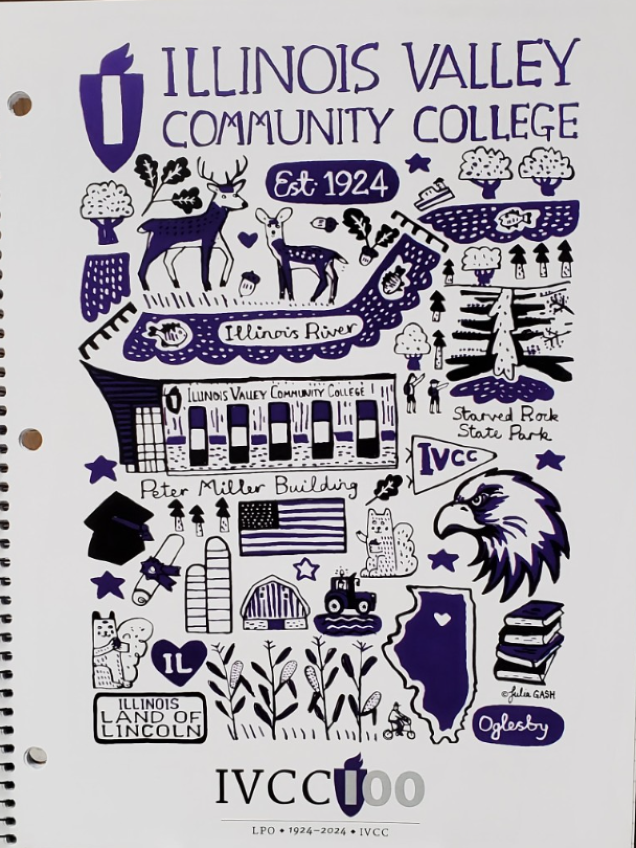 ILLINOIS VALLEY
COMMUNITY COLLEGE
Est 1924
Illinois River
ILLINOIS VALLEY COMMUNITY COLLEGE
Starved Rock
State Park
IVCC
Peter Miller Building
IL
ILLINOIS
LAND OF
LINCOLN
© Julia GASH
Oglesby
IVCC 100
LPO • 1924–2024 • IVCC